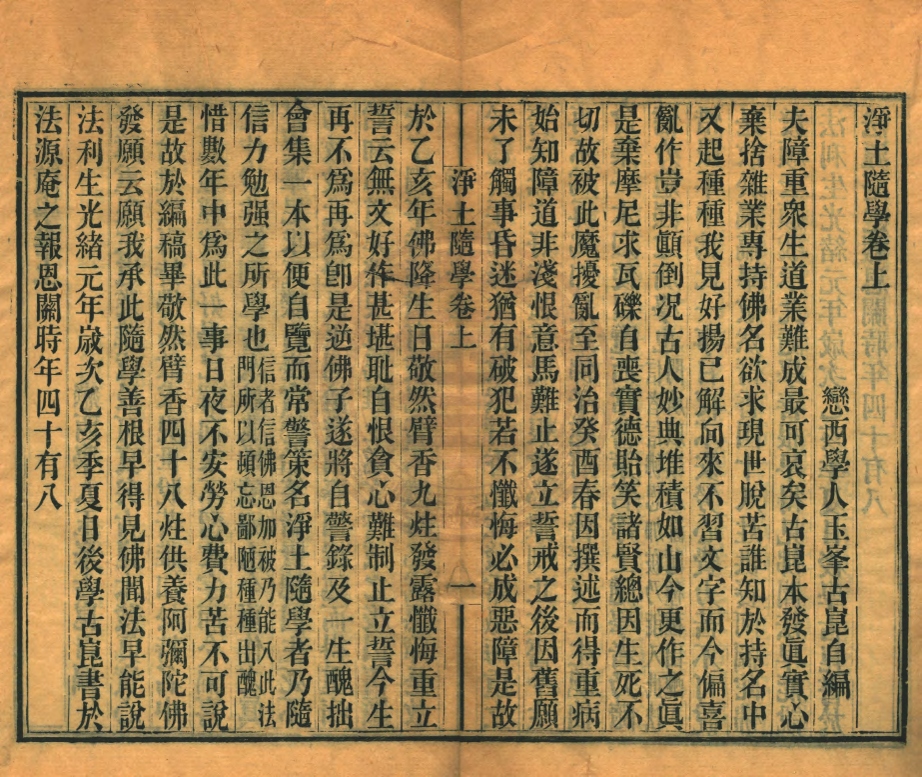 淨土隨學卷上
戀西學人玉峯古崑自編
夫障重衆生道業難成最可哀矣古崑本發眞實心
棄捨雜業專持佛名欲求現世脫苦誰知於持名中
又起種種我見好揚已解向來不習文字而今偏喜
亂作豈非顚倒况古人妙典堆積如山今更作之眞
是棄摩尼求瓦礫自喪實德貽笑諸賢總因生死不
切故被此魔擾亂至同治癸酉春因撰述而得重病
始知障道非淺恨意馬難止遂立誓戒之後因舊願
未了觸事昏迷猶有破犯若不懺悔必成惡障是故
淨土隨學卷上 一
於乙亥年佛降生日敬然臂香九炷發露懺悔重立
誓云無文好作甚堪耻自恨貪心難制止立誓今生
再不爲再爲卽是逆佛子遂將自警錄及一生醜拙
會集一本以便自覽而常警策名淨土隨學者乃隨
信力勉强之所學也信者信佛恩加被乃能入此法
門所以頓忘鄙陋種種出醜
惜數年中爲此一事日夜不安勞心費力苦不可說
是故於編稿畢敬然臂香四十八炷供養阿彌陀佛
發願云願我承此隨學善根早得見佛聞法早能說
法利生光緒元年歲次乙亥季夏日後學古崑書於
法源庵之報恩關時年四十有八